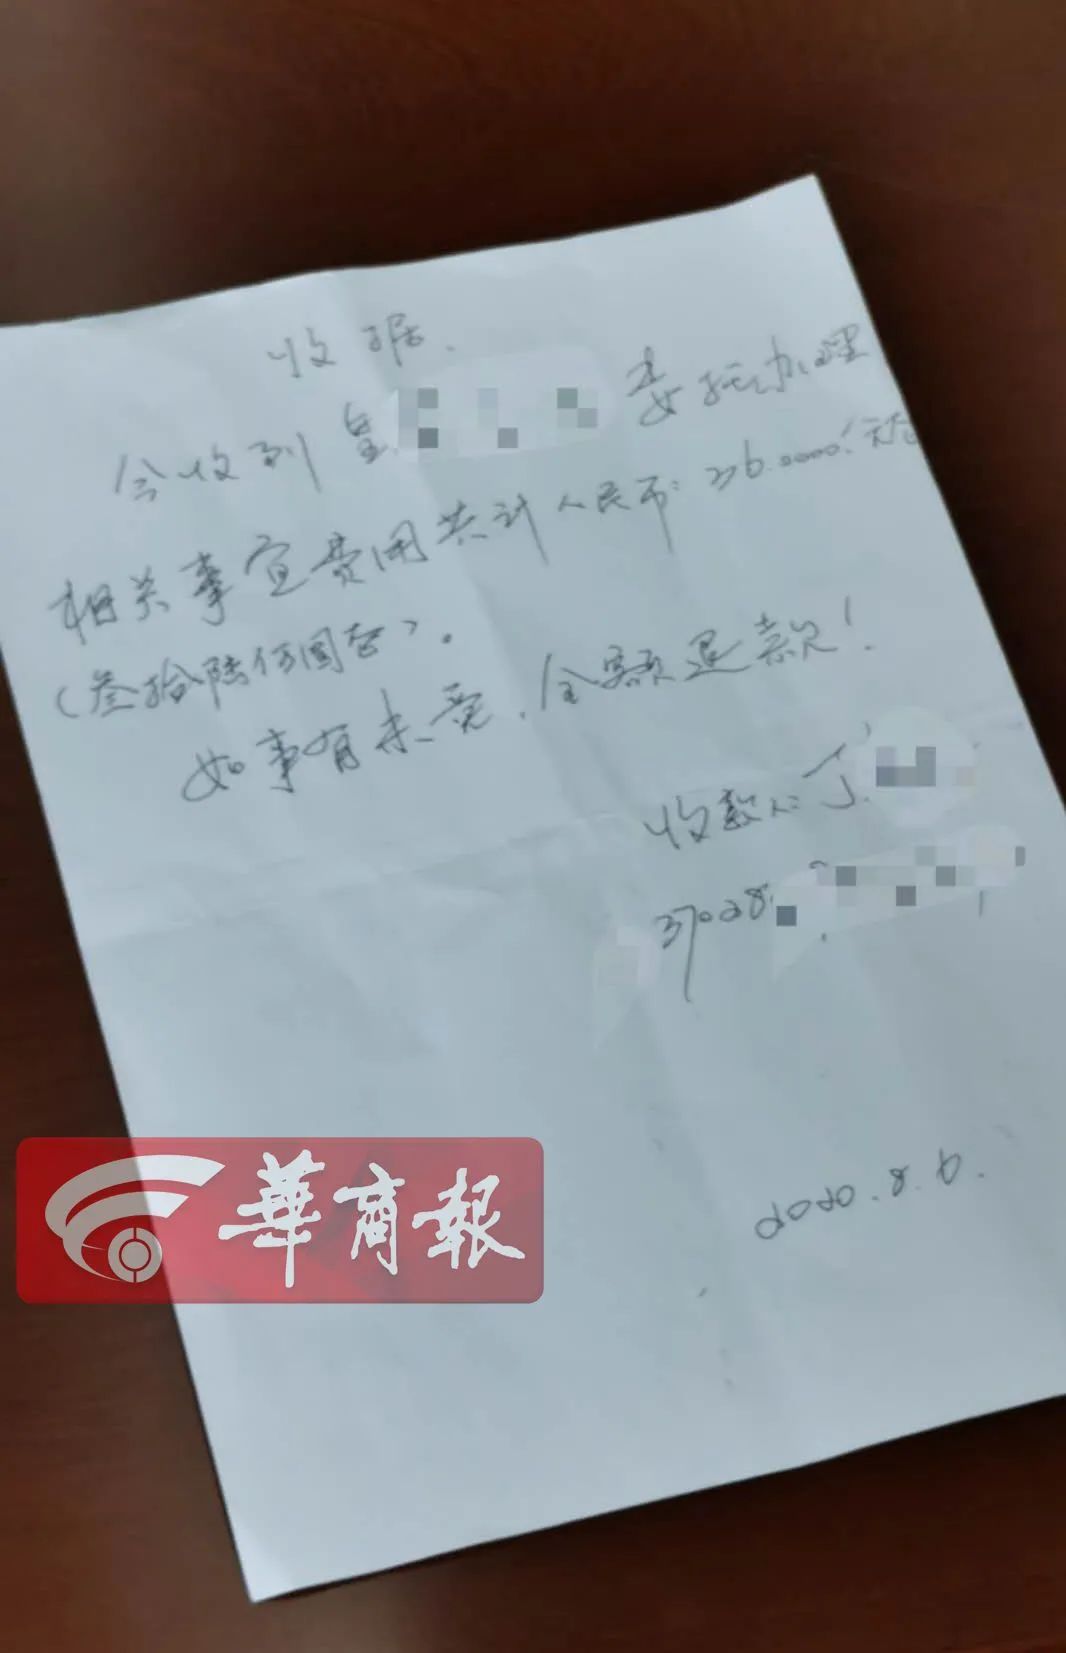 收据.
今收到 委托办理
相关事宜费用共计人民币:
(叁拾陆万圆整)。
如事有未竟,全额退款!
收款人:丁
37028
2020.8.6.
華商報